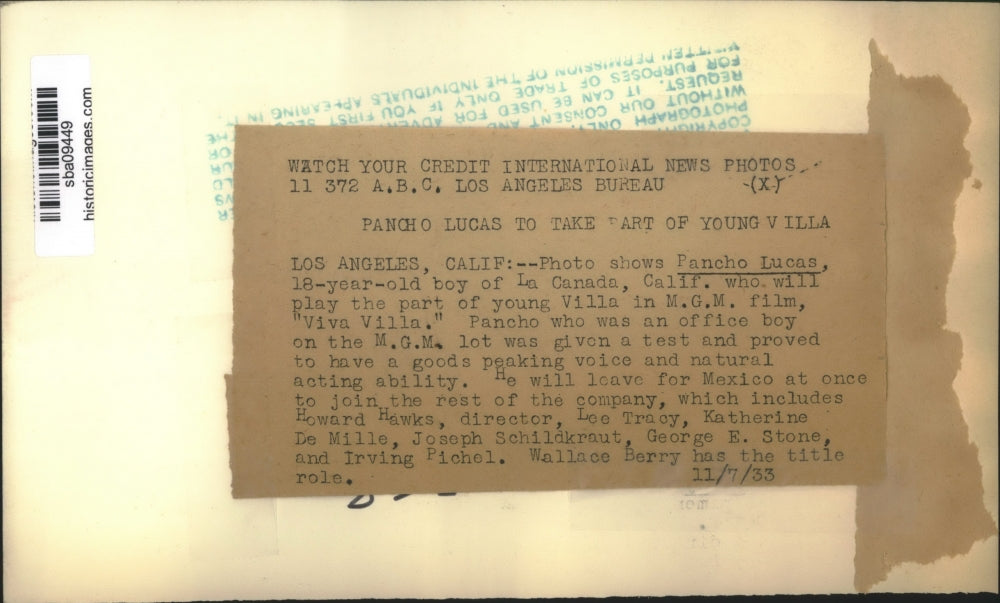 WRITTEN PERMISSION OF THE INDIVIDUALS APPEARING IN
FOR PURPOSES OF TRADE ONLY IF YOU FIRST
REQUEST. IT CAN BE USED FOR
WITHOUT OUR CONSENT AND
PHOTOGRAPH ONLY.
sba09449
historicimages.com
WATCH YOUR CREDIT INTERNATIONAL NEWS PHOTOS
11 372 A.B.C. LOS ANGELES BUREAU (X)
PANCHO LUCAS TO TAKE PART OF YOUNG VILLA
LOS ANGELES, CALIF:--Photo shows Pancho Lucas,
18-year-old boy of La Canada, Calif. who will
play the part of young Villa in M.G.M. film,
"Viva Villa." Pancho who was an office boy
on the M.G.M. lot was given a test and proved
to have a goods peaking voice and natural
acting ability. He will leave for Mexico at once
to join the rest of the company, which includes
Howard Hawks, director, Lee Tracy, Katherine
De Mille, Joseph Schildkraut, George E. Stone,
and Irving Pichel. Wallace Berry has the title
role. 11/7/33